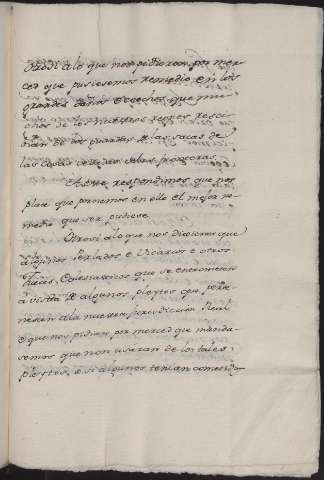 Otrosi alo que nos pidieron por mer
ced que pusiesemos remedio en los
grandes daños e cochos que mu
chos de los nuestros
de los guardas de las sacas de
las cosas vedadas delas fronteras.
A esto respondimos que nos
plaze que ponemos en ello el mejor re
medio que ser pudiese.
Otrosi alo que nos dixieron que
algunos Perlados e Vicarios e otros
Jueces Eclesiasticos que se entremeten
a vista de algunos pleytos que perte
nescen ala nuestra jurisdiccion Real
e que nos pidian por merced que manda
semos que non usaran de los tales
pleytos, e si algunos tenian comenza